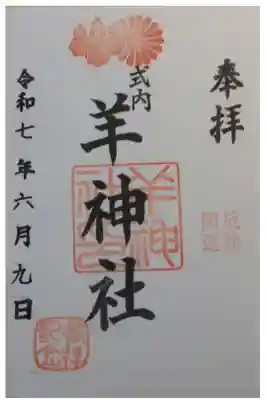 奉拝
式内
羊神社
令和七年六月九日
羊神
社